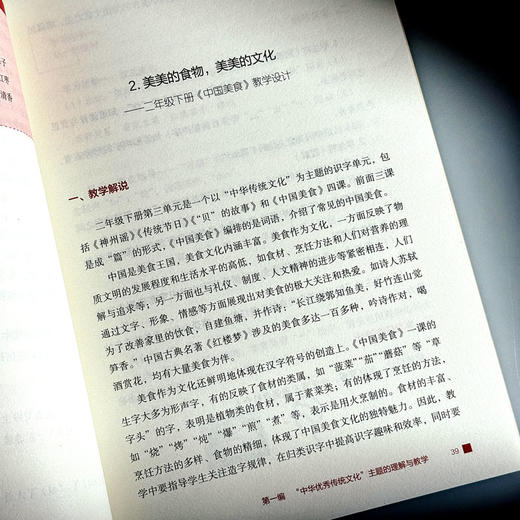 子
红枣
清香
2. 美美的食物，美美的文化
——二年级下册《中国美食》教学设计
一、教学解说
二年级下册第三单元是一个以“中华传统文化”为主题的识字单元，包
括《神州谣》《传统节日》《“贝”的故事》和《中国美食》四课。前面三课
是成“篇”的形式，《中国美食》编排的是词语，介绍了常见的中国美食。
中国是美食王国，美食文化内涵丰富。美食作为文化，一方面反映了物
质文明的发展程度和生活水平的高低，如食材、烹饪方法和人们对营养的理
解与追求等；另一方面也与礼仪、制度、人文精神的进步等紧密相连，人们
通过文字、形象、情感等方面展现出对美食的极大关注和热爱。如诗人苏轼
为了改善家里的饮食，自建鱼塘，并作诗：“长江绕郭知鱼美，好竹连山觉
笋香。”中国古典名著《红楼梦》涉及的美食多达一百多种，吟诗作对，喝
酒赏花，均有大量美食为伴。
美食作为文化还鲜明地体现在汉字符号的创造上。《中国美食》一课的
生字大多为形声字，有的反映了食材的类属，如“菠菜”“茄”“蘑菇”等“草
字头”的字，表明是植物类的食材，属于素菜类；有的体现了烹饪的方法，
如“烧”“烤”“炖”“爆”“煎”“煮”等，表示是用火烹制的。食材的丰富、
烹饪方法的多样、食物的精细，体现了中国美食文化的独特魅力。因此，教
学中要指导学生关注造字规律，在归类识字中提高识字趣味和效率，同时要
第一编 “中华优秀传统文化”主题的理解与教学
39